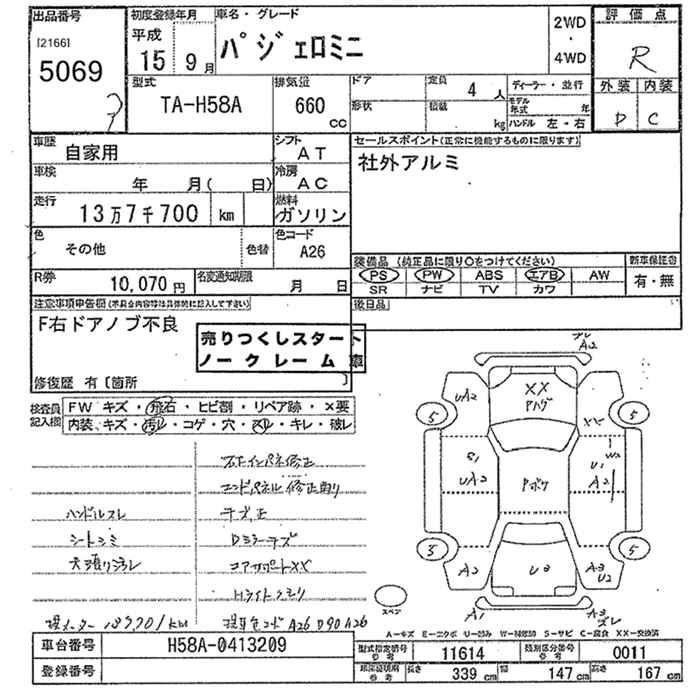 出品番号 初度登録年月 車名・グレード 2WD ・ 4WD 評価点
[2166] 5069 平成 15年 9月 パジェロミニ R
型式 TA-H58A 排気量 660 CC ドア 形状 定員 4人 積載 kg ディーラー・並行 モデル年式 年 ハンドル 左・右 外装 内装 D C
車歴 自家用 シフト AT セールスポイント(正常に機能するものに限ります)
車検 年 月( 日) 冷房 AC 社外アルミ
走行 13万7千700 km 燃料 ガソリン
色 その他 色替 色コード A26 装備品 (純正品に限り〇をつけてください) 新車保証書
PS PW ABS エアB AW 有・無
SR ナビ TV カワ
R券 10,070円 名変通知期限 月 日 後日品
注意事項申告欄(不具合内容等は具体的に記入して下さい)
F右ドアノブ不良
売りつくしスタート
ノークレーム 車
修復歴 有〔箇所 〕
検査員記入欄 FW キズ・飛石・ヒビ割・リペア跡・×要
内装 キズ・汚れ・コゲ・穴・スレ・キレ・破レ
右Fインパネ修正
エンドパネル修正有り
ハンドルスレ キズ,正
シートシミ Dミラーキズ
天張リヨゴレ コアサポートXX
Hライトクモリ
現メーター 137,701km 現車色コード A26 D90 A26
ズレ A2
UA2 XX アハゲ XX
5 5
S1 UA2 アボク U1 A2 W2
5 5
A2 U3 A3 U2
A1 A3 ズレ
スペア
A-キズ E-エクボ U-凹み W-補修跡 S-サビ C-腐食 XX-交換済
車台番号 H58A-0413209 型式指定番号 参考 11614 類別区分番号 参考 0011
登録番号 車検証明用 参考 長さ 339 cm 幅 147 cm 高さ 167 cm